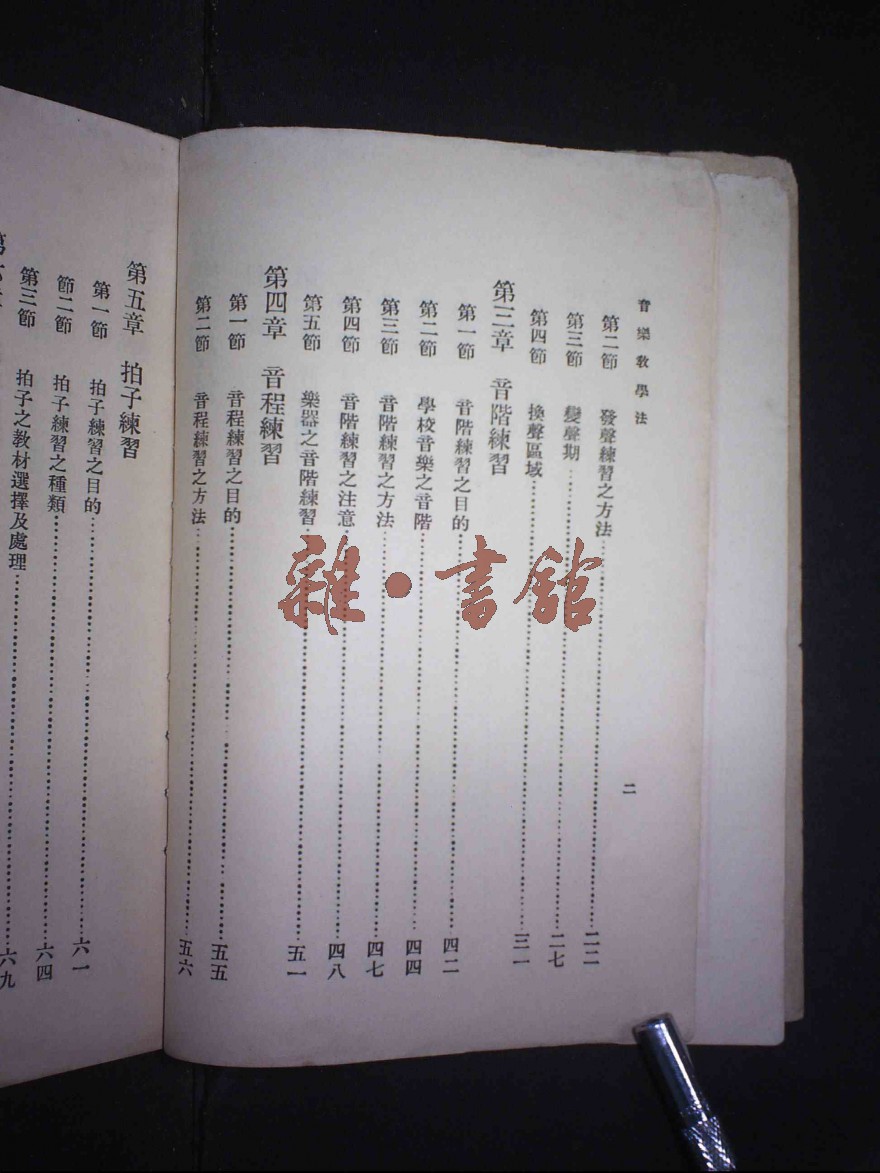 音樂教學法
第二節 發聲練習之方法……二二
第三節 變聲期……二七
第四節 換聲區域……三一
第三章 音階練習
第一節 音階練習之目的……四二
第二節 學校音樂之音階……四四
第三節 音階練習之方法……四七
第四節 音階練習之注意……四八
第五節 樂器之音階練習……五一
第四章 音程練習
第一節 音程練習之目的……五五
第二節 音程練習之方法……五六
二
第五章 拍子練習
第一節 拍子練習之目的……六一
節二節 拍子練習之種類……六四
第三節 拍子之教材選擇及處理……六九
雜·書館